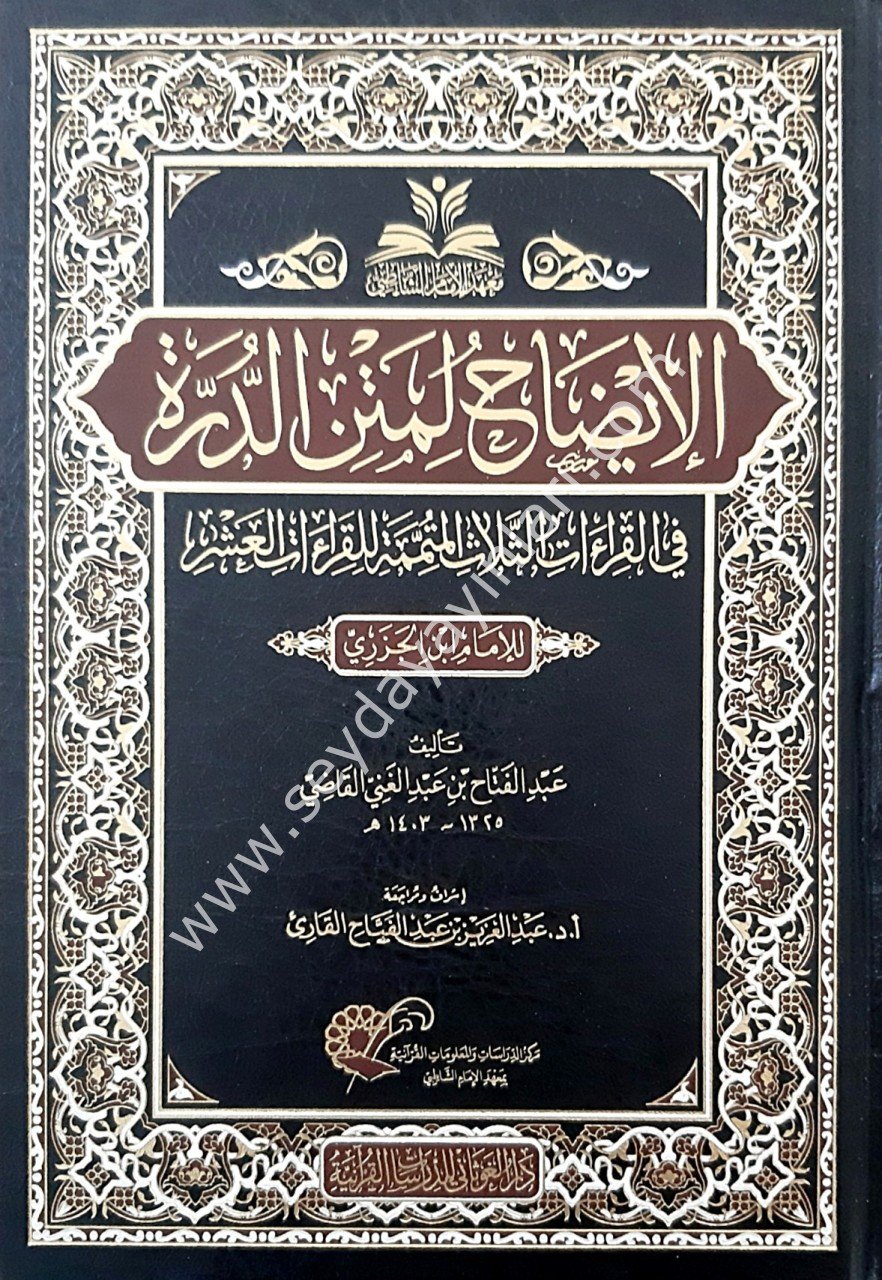 معهد الإمام الشاطبي
الإيضاح لمتن الدرة
في القراءات الثلاث المتممة للقراءات العشر
للإمام ابن الجزري
تأليف
عبد الفتاح بن عبد الغني القاضي
١٣٢٥ - ١٤٠٣ هـ
إشراف ومراجعة
أ.د. عبد العزيز بن عبد الفتاح القارئ
مركز الدراسات والمعلومات القرآنية
بمعهد الإمام الشاطبي
دار الغوثاني للدراسات القرآنية
www.seydayayinlari.com